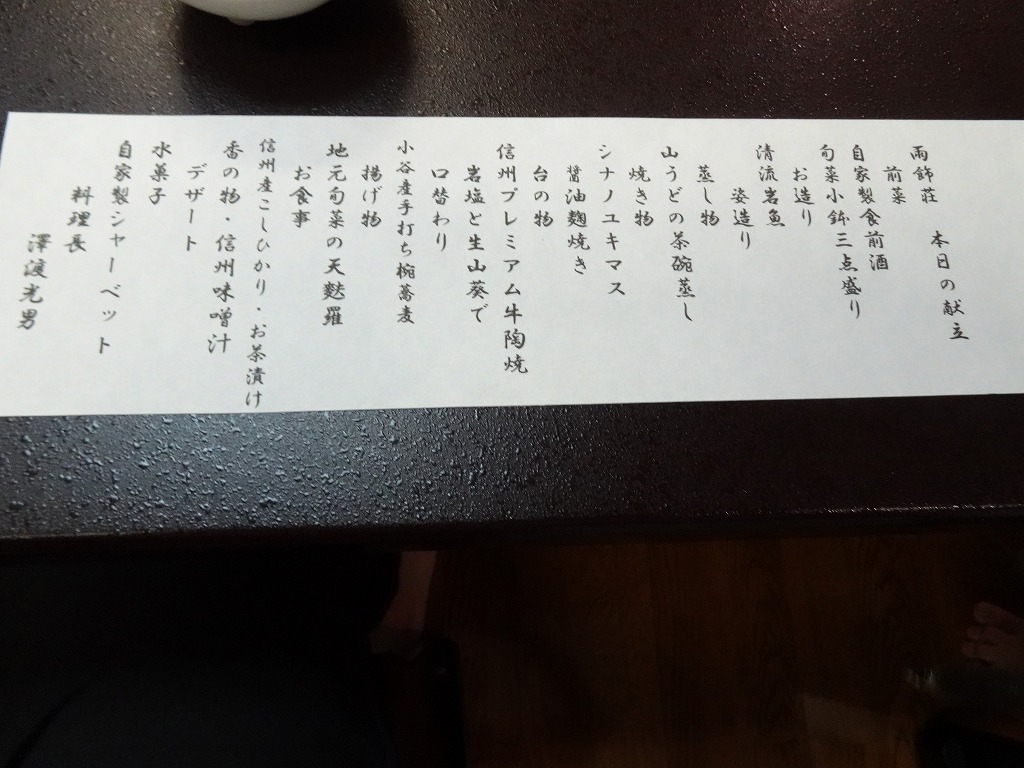 雨飾荘　本日の献立
前菜
自家製食前酒
旬菜小鉢三点盛り
お造り
清流岩魚
姿造り
蒸し物
山うどの茶碗蒸し
焼き物
シナノユキマス
醤油麹焼き
台の物
信州プレミアム牛陶焼
岩塩と生山葵で
口替わり
小谷産手打ち椀蕎麦
揚げ物
地元旬菜の天麩羅
お食事
信州産こしひかり・お茶漬け
香の物・信州味噌汁
デザート
水菓子
自家製シャーベット
料理長
澤渡光男